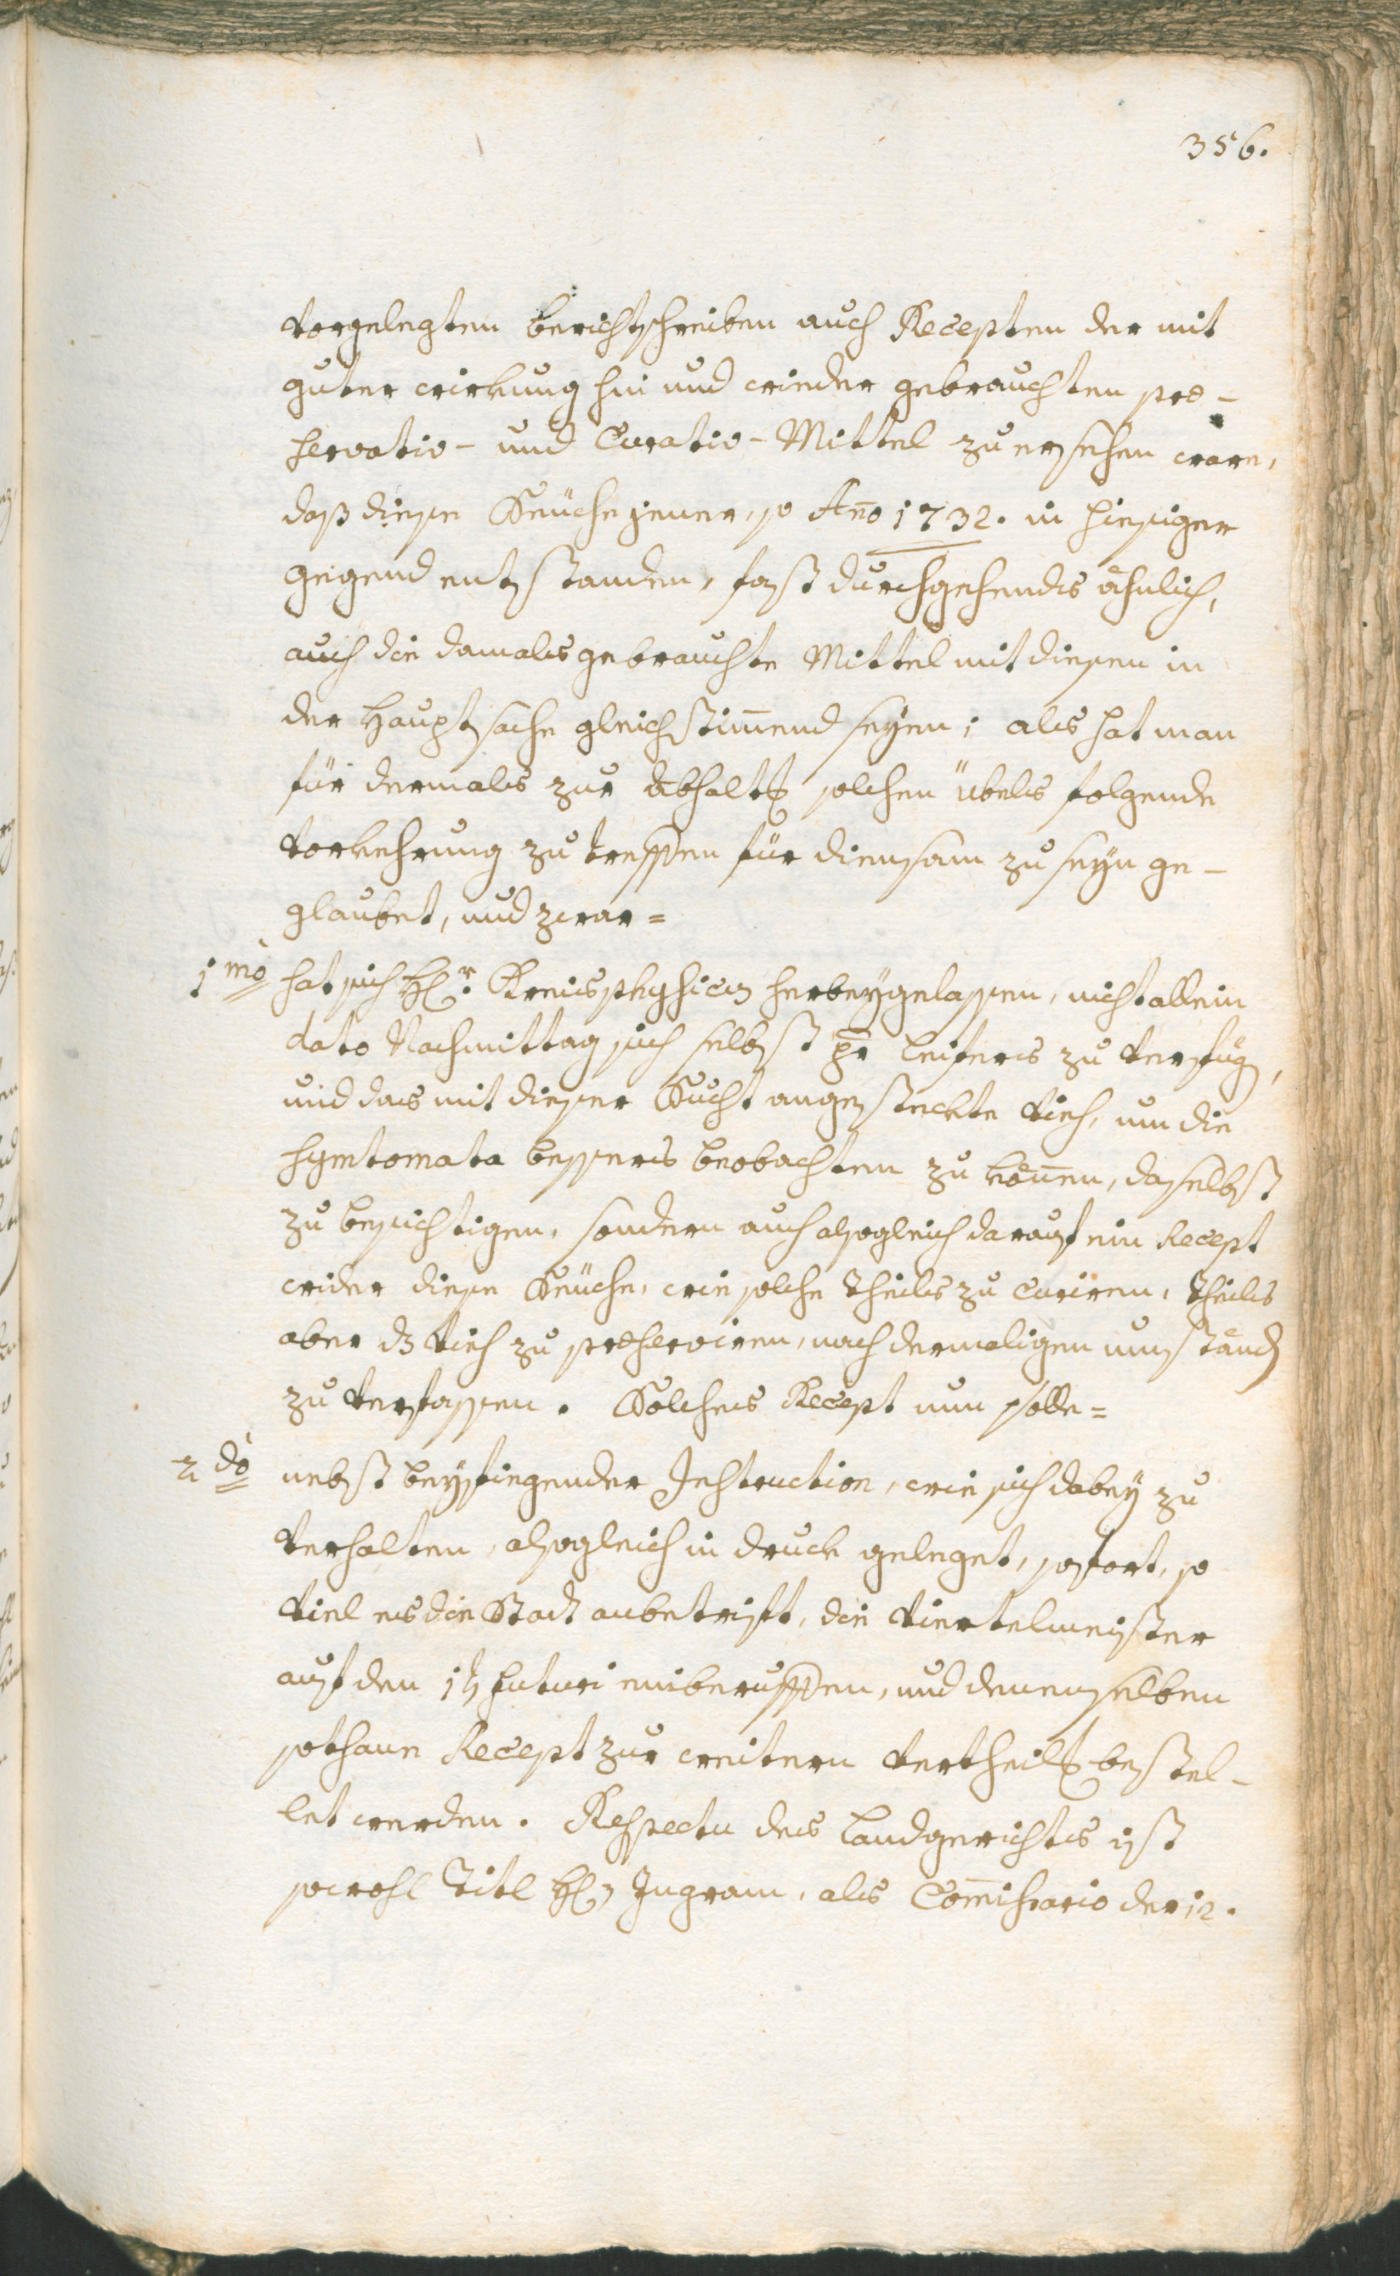 356.
vorgelegten berichtschreiben auch Recepten der mit
guter wirkung hin und wieder gebrauchten præ-
servativ- und Curativ-Mittel zu ersehen ware,
daß diese Seüche jener, so Año 1732. in hiesiger
gegend entstanden, fast durchgehends ähnlich,
auch die damals gebrauchte Mittel mit diesen in
der Hauptsache gleichstim̄end seyen; als hat man
für dermals zur abhaltg solchen übels folgende
vorkehrung zu treffen für diensam zu seyn ge-
glaubet, und zwar=
1mò hat sich H:r Kreisphysicus herbeygelassen, nicht allein
dato Nachmittag sich selbst pr Leifers zu verfügen,
und das mit dieser Sucht angesteckte vieh, um die
Symtomata bessers beobachten zu köñen, daselbst
zu besichtigen, sondern auch alsogleich darauf ein Recept
wider diese Seüche, wie solche theils zu Curiren, theils
aber dz vieh zu præserviren, nach dermaligen umständen
zu verfassen. Solches Recept nun solle=
2dò nebst beyfiegender Instruction, wie sich dabey zu
verhalten, alsogleich in druck geleget, sofort, so
viel es die Stadt anbetrift, die viertelmeister
auf den 1t futuri einberuffen, und denenselben
sothane Recept zur weitern vertheilg bestel-
let werden. Respectu des Landgerichts ist
sowohl Titl H: Ingram, als Com̄issario der 12.